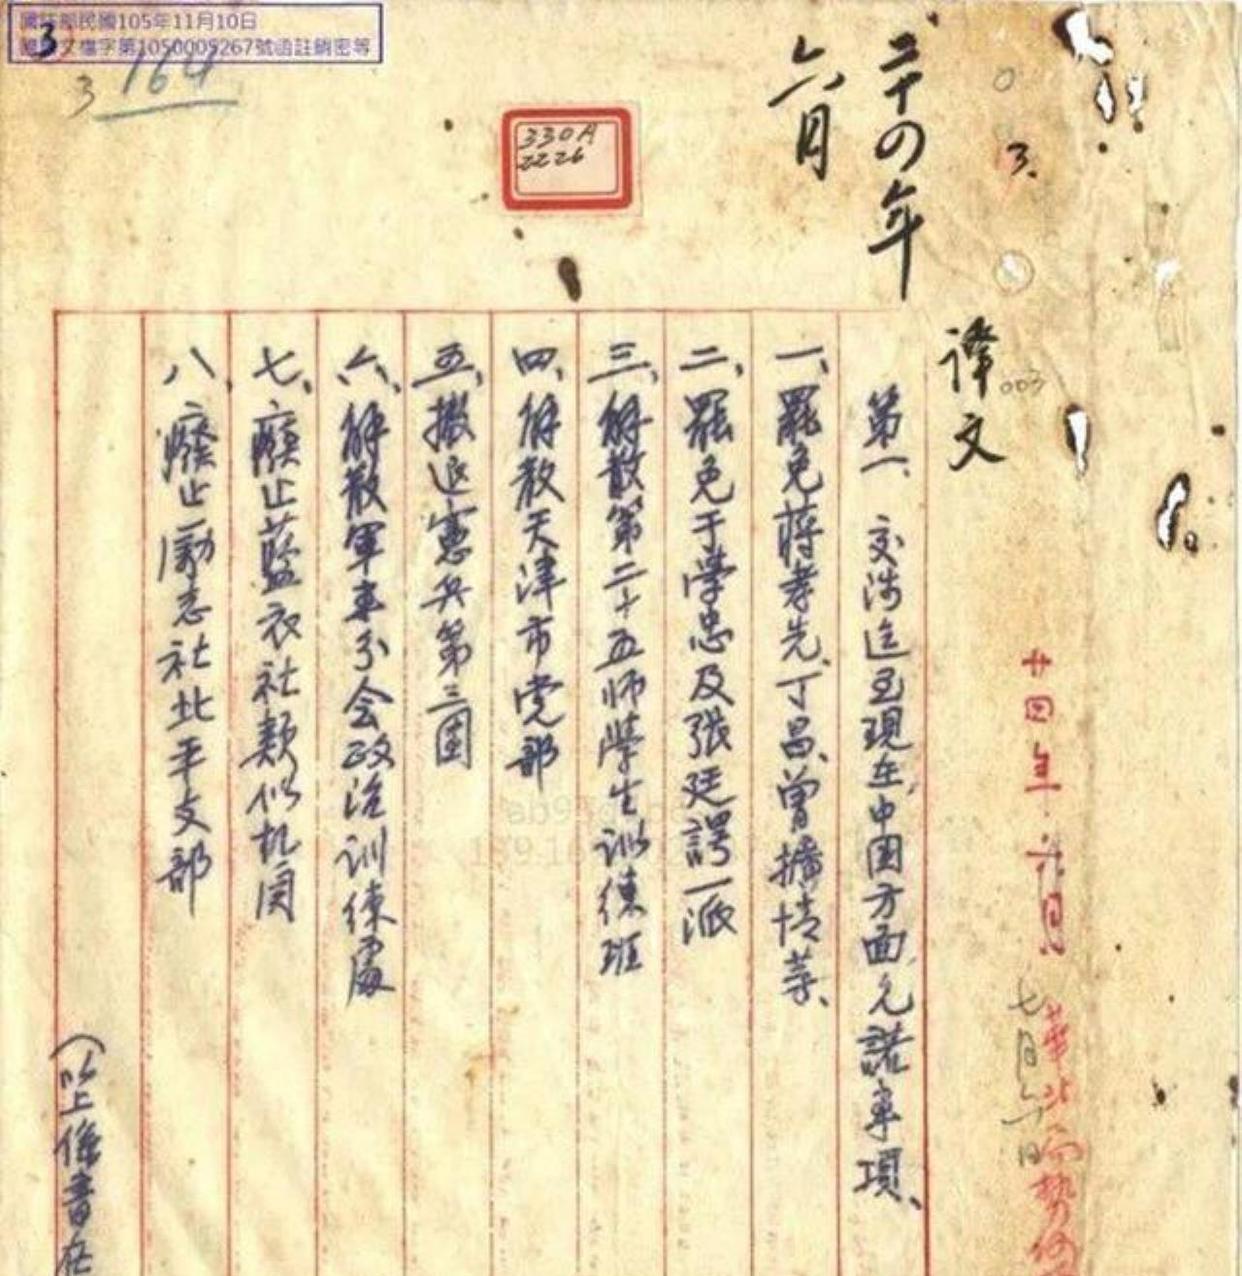 國防部民國105年11月10日
國 文檔字第1050005267號函註銷密等
3
3 164
330A
2226
3.
003
二十の年
六月
译文
廿四年六月
七月六日
華北局勢
第一、交涉迄至現在、中國方面允諾事項、
一、罷免蔣孝先、丁昌、曾擴情等、
二、罷免于學忠及張廷諤一派
三、解散第二十五师學生训練班
四、解散天津市党部
五、撤退憲兵第三团
六、解散軍事分会政治训練處
七、廢止藍衣社類似机関
八、廢止勵志社北平支部
(以上係書在